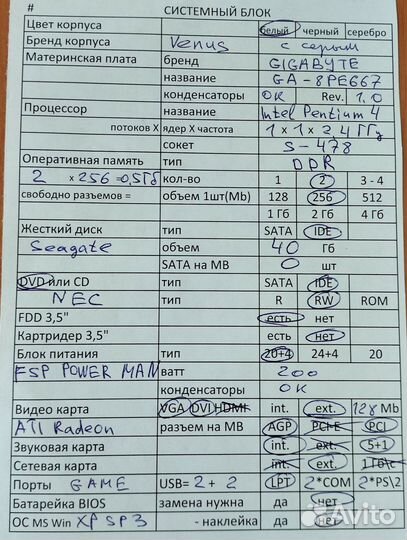 # СИСТЕМНЫЙ БЛОК
Цвет корпуса белый черный серебро
Бренд корпуса Venus с серым
Материнская плата бренд GIGABYTE
название GA-8PE667
конденсаторы OK Rev. 1.0
Процессор название Intel Pentium 4
потоков X ядер X частота 1 x 1 x 2,4 ГГц
сокет S-478
Оперативная память тип DDR
2 x 256 = 0,5Гб кол-во 1 2 3 - 4
свободно разъемов = объем 1шт(Mb) 128 256 512
1 Гб 2 Гб 4 Гб
Жесткий диск тип SATA IDE
Seagate объем 40 Гб
SATA на МВ 0 шт
DVD или CD тип SATA IDE
NEC тип R RW ROM
FDD 3,5" есть нет
Картридер 3,5" есть нет
Блок питания тип 20+4 24+4 20
FSP POWER MAN ватт 200
конденсаторы OK
Видео карта VGA DVI HDMI int. ext. 128 Mb
ATI Radeon разъем на МВ AGP PCI-E PCI
Звуковая карта int. ext. 5+1
Сетевая карта int. ext. 1Гб\с
Порты GAME USB= 2 + 2 LPT 2*COM 2*PS\2
Батарейка BIOS замена нужна да нет
ОС MS Win XP SP3 - наклейка да нет
Avito